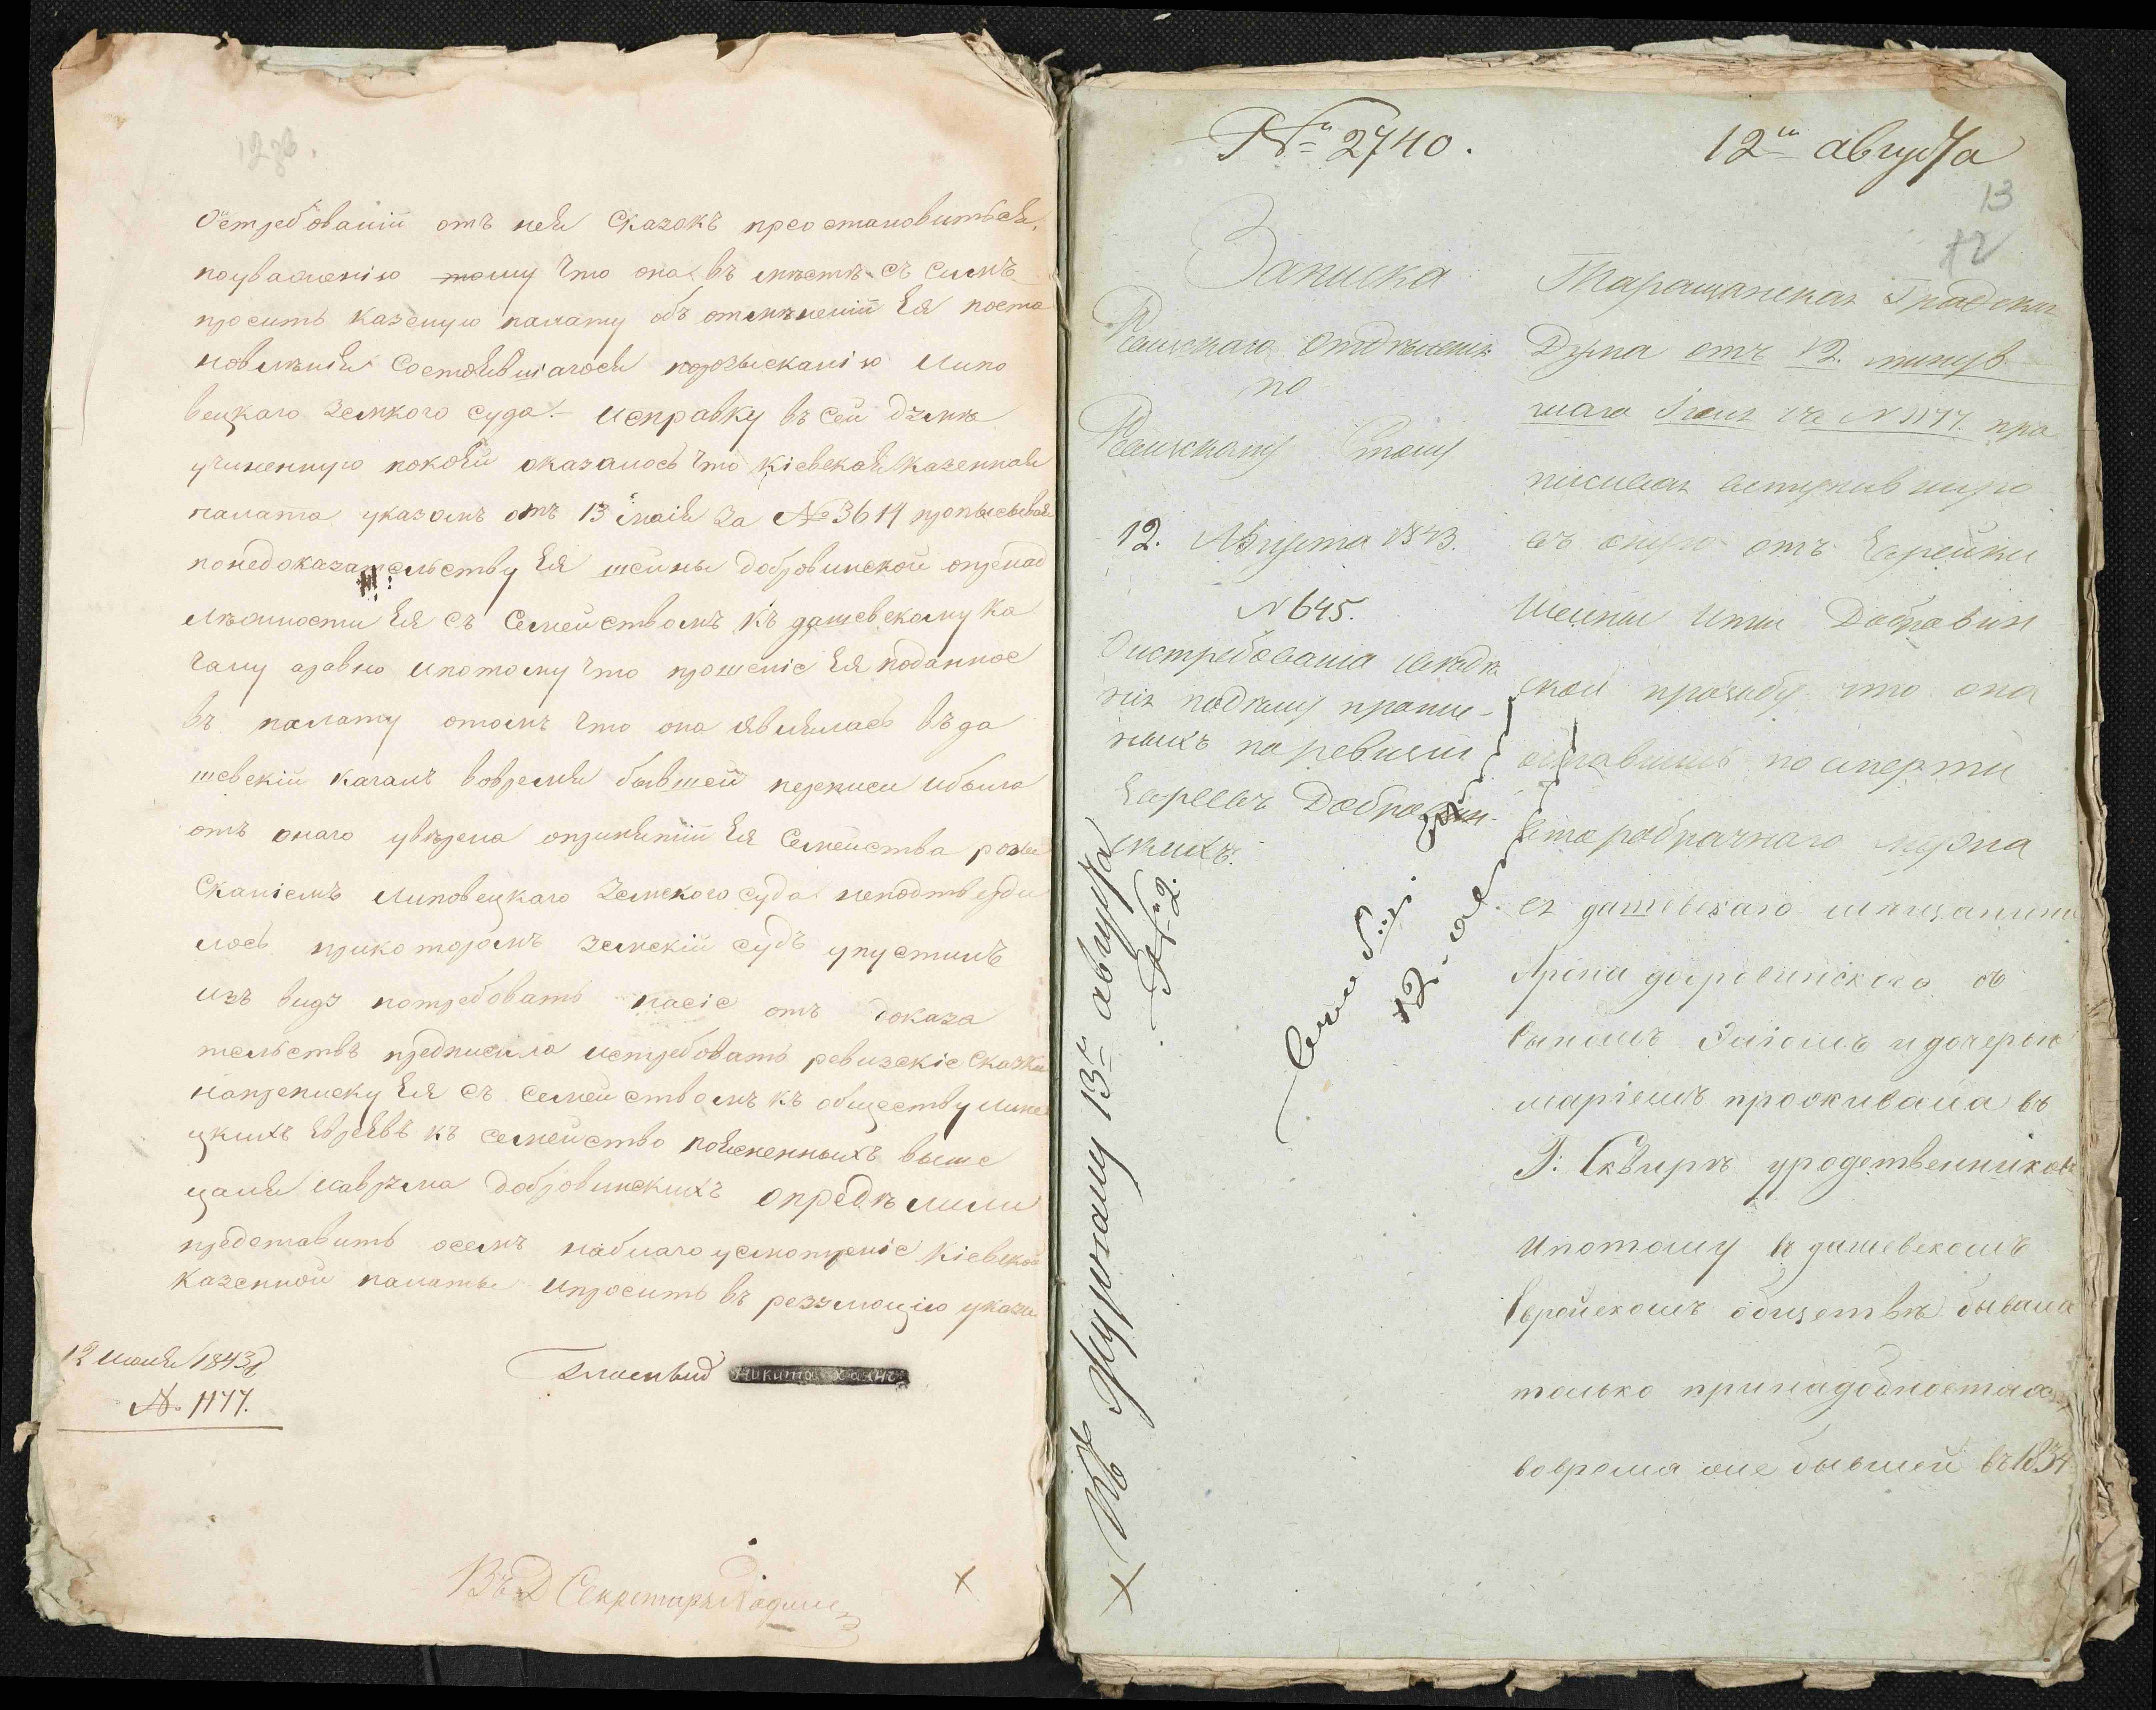 О истребованіи отъ нея Сказокъ преостановиться,
поуваженію тому что она въ мѣстѣ съ симъ
просить казеную палату объ отмѣненіи Ея поста
новленія Состоявшагося порозысканію Липо
вецкаго Земкого суда.- исправку въ сей думѣ
учиненную покоей оказалось что Кіевская Казенная
палата указомъ отъ 13 маія за № 3614 прописывая
понедоказательству Ея шейны добровинской опренад
лѣжности Ея съ Семействомъ къ дашевскому Ка
галу аравно ипотому что прошеніе Ея поданное
въ палату отомъ что она являлась въ да
шевскій кагалъ вовремя бывшей переписи ибыла
отъ онаго увѣрена опринятіи Ея Семейства розы
Сканіемъ Липовецкаго Земского суда неподтверди
лось прикоторомъ земскій судъ упустилъ
изъ виду потребовать насіе отъ доказа
тельствъ предписала истребовать ревизскіе Сказки
наприписку Ея съ семействомъ къ обществу липове
цкихъ Евреевъ къ семейство поясненныхъ выше
цаля лаврѣма добровинскихъ опредѣлили
представить осемъ наблагоусмотреніе Кіевской
Казенной палаты ипросить въ резолюцію указа
12 июля 1843 г
№ 1177.
Гласный Никита
ВъД Секретаря
№ 2740.
12го августа
13
12
Записка
Ревизскаго Отдѣленія
по
Ревизскому Столу
12. Августа 1843.
№ 645.
О истребованіи свѣдѣ
нія подчему пропи-
ныхъ по ревизіи
Евреевъ Добровин-
скихъ.
Къ Журналу 13го августа
№ 2.
12.
Таращанская Градская
Дума отъ 12. минув
шаго Іюля за № 1177. про
писывая вступившую
въ оную отъ Еврейки
Шейны Итты Добровин
ской прозьбу что она
оставшись по смерти
второбрачнаго мужа
ея дашевскаго мѣщанина
Арона добровинского съ
Сыномъ Зусіомъ идочерью
маріемъ проживала въ
Г: Сквирѣ уродственниковъ
ипотому въ дашевскомъ
Еврейскомъ обществѣ бывала
только принадобностяхъ
вовремя же бывшей въ 1834